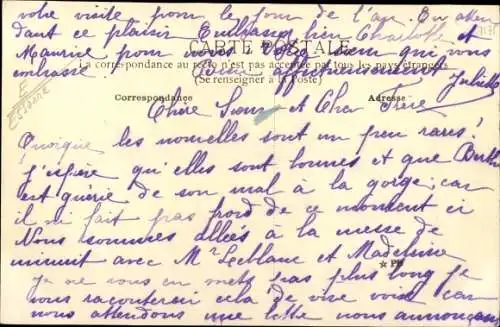 votre visite pour le jour de l'an. En atten
dant ce plaisir Embrassez bien Charlotte et
Maurice pour nous votre sœur qui vous
embrasse bien affectueusement
Juliette
CARTE POSTALE
La correspondance au recto n'est pas acceptée par tous les pays étrangers
(Se renseigner à la Poste)
Correspondance
Adresse
Chère Sœur et Cher Frère
Quoique les nouvelles sont un peu rares!
J'espère qu'elles sont bonnes et que Berthe
est guérie de son mal à la gorge; car
il ne fait pas froid de ce moment ci
Nous sommes allées à la messe de
minuit avec Mr Leblanc et Madeleine
Je ne vous en mets pas plus long je
vous raconterais cela de vive voix car
nous attendons une lettre nous annonçant